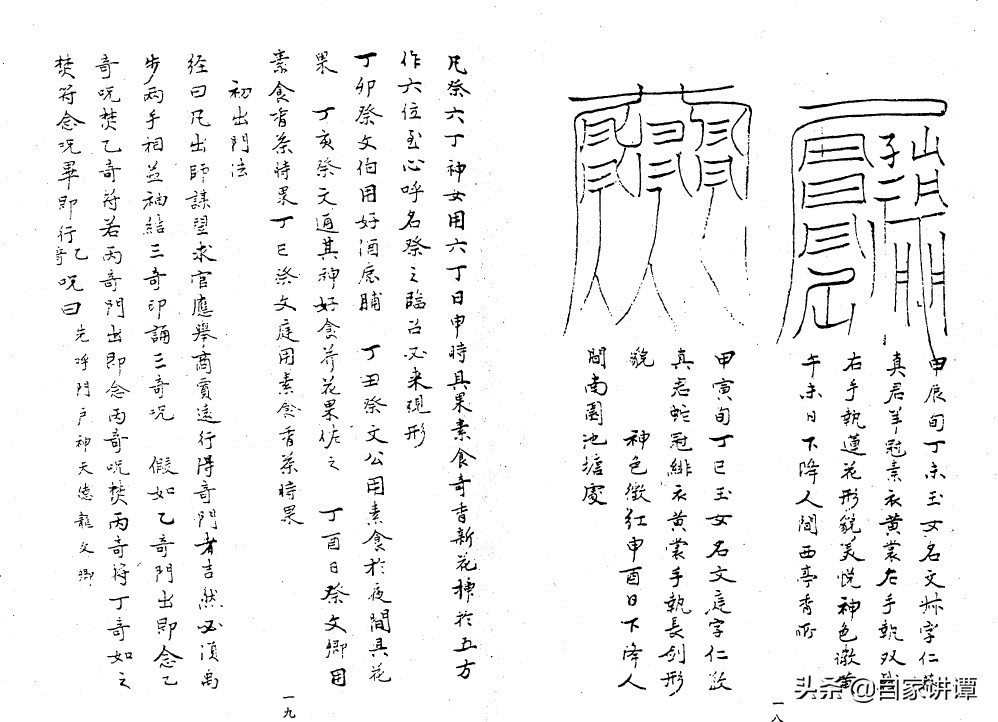 甲辰旬丁未玉女名文㛮字仁
真君羊冠素衣黄裳左手執双
右手執蓮花形貌美悦神色微黄
午未日下降人間西亭
甲寅旬丁巳玉女名文庭字仁
真君蛇冠緋衣黄裳手執長剑形
貌 神色微红申酉日下降人
間南園池塘處
一八
凡祭六丁神女用六丁日申時具果素食奇香新花 於五方
作六位至心呼名祭之臨召必来現形
丁卯祭文伯用好酒鹿脯 丁丑祭文公用素食於夜間具花
果 丁亥祭文通其神好食芥花果依之 丁酉日祭文卿用
素食香茶時果丁巳祭文庭用素食香茶時果
初出門法
经曰凡出師謀望求官應舉商賈遠行得奇門者吉然必須禹
步两手相並袖結三奇印誦三奇咒 假如乙奇門出即念乙
奇咒焚乙奇符若丙奇門出即念丙奇咒焚丙奇符丁奇如之
焚符念咒畢即行乙奇咒曰 先呼門户神天德龍文卿
一九
头条@国家讲谭